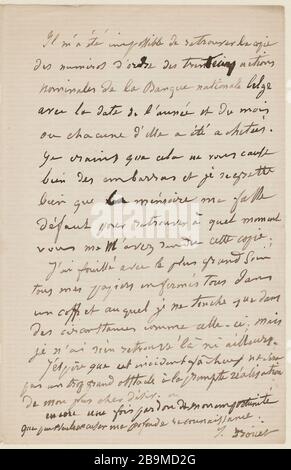 Il m'a été impossible de retrouver la copie
des numéros d'ordre des trente cinq actions
nominales de la Banque nationale belge
avec la date de l'année et du mois
où chacune d'elle a été achetée.
Je crains que cela ne vous cause
bien des embarras et je regrette
bien que la mémoire me fasse
défaut pour retrouver à quel moment
vous m'avez rendu cette copie;
J'ai fouillé avec le plus grand soin
tous mes papiers enfermés tous dans
un coffre auquel je ne touche que dans
des circonstances comme celle-ci; mais
je n'ai rien retrouvé là ni ailleurs.
J'espère que cet incident fâcheux ne sera
pas un trop grand obstacle à la prompte réalisation
de mon plus cher désir.
encore une fois pardon de mon importunité
que profonde reconnaissance.
J. Drouet
alamy
Image ID: 2E9MDZG
www.alamy.com